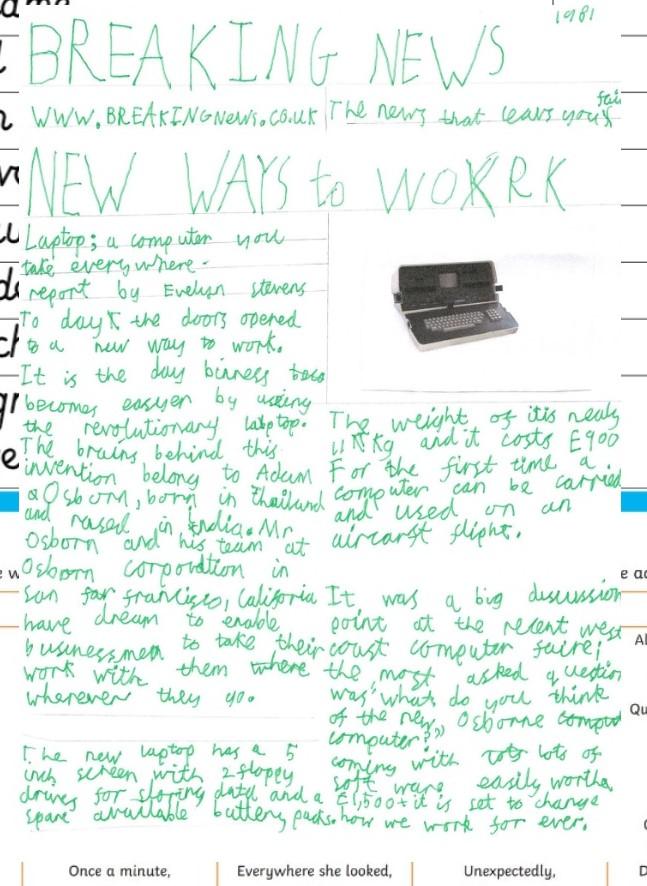 1981
BREAKING NEWS
WWW.BREAKINGNewS.CO.UK
The news that leavs you
NEW WAYS to WORK
Laptop; a computer you
take everywhere.
report by Evelyn stevens
To day the doors opened
to a new way to work.
It is the day
becomes easyer by useing
the revolutionary labtop.
The brains behind this
invention belong to Adam
Osborn, born in thailand
and raised in India. Mr
Osborn and his team at
Osborn corporation in
San francisco, Califoria
have dream to enable
businessmen to take their
work with them
wherever they go.
The new laptop has a 5
inch screen with 2 floppy
drives for storing data and a
spare available battery packs.
The weight of it is nealy
11 Kg and it costs £900
For the first time a
computer can be carried
and used on an
aircarst flight.
It was a big disussion
point at the recent west
coast computer faire;
the most asked question
was "what do you think
of the new Osborne
computer?"
coming with lots of
soft ware easily worth
£1,500+ it is set to change
how we work for ever.
Once a minute,
Everywhere she looked,
Unexpectedly,